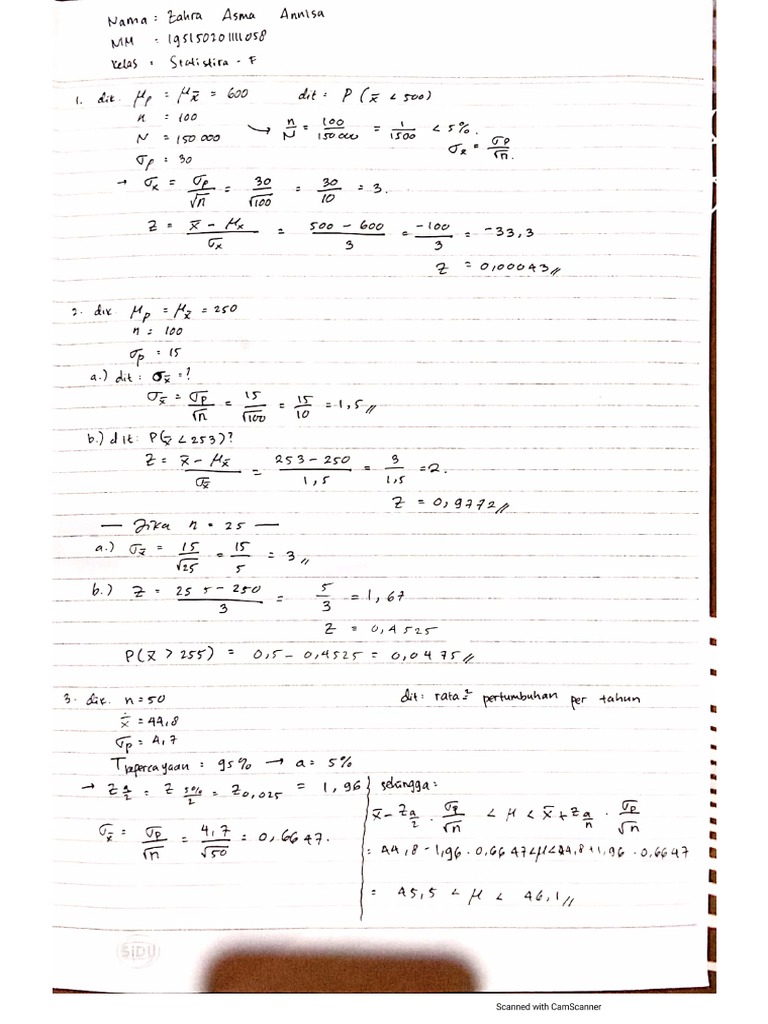 Nama : Zahra Asma Annisa
NIM : 195150201111058
Kelas : Statistika - F
1. dit. μp = μx̄ = 600 dit : P (x̄ < 500)
n = 100
N = 150 000 → n/N = 100/150 000 = 1/1500 < 5%.
σp = 30 σx̄ = σp/√n.
→ σx = σp/√n = 30/√100 = 30/10 = 3.
Z = x̄ - μx/σx = 500 - 600/3 = -100/3 = -33,3
Z = 0,00043//
2. dik. μp = μx̄ = 250
n = 100
σp = 15
a.) dit : σx̄ = ?
σx̄ = σp/√n = 15/√100 = 15/10 = 1,5//
b.) dit : P(x̄ < 253)?
Z = x̄ - μx̄/σx̄ = 253 - 250/1,5 = 3/1,5 = 2.
Z = 0,9772//
— Jika n = 25 —
a.) σx̄ = 15/√25 = 15/5 = 3//
b.) Z = 255 - 250/3 = 5/3 = 1,67
Z = 0,4525
P(x̄ > 255) = 0,5 - 0,4525 = 0,0475//
3. dik. n = 50 dit : rata² pertumbuhan per tahun
x̄ = 44,8
σp = 4,7
Tkepercayaan : 95% → a = 5%
→ Z a/2 = Z 5%/2 = Z0,025 = 1,96
σx̄ = σp/√n = 4,7/√50 = 0,6647.
sehingga :
x̄ - Z a/2 . σp/√n < μ < x̄ + Z a/n . σp/√n
= 44,8 - 1,96 . 0,6647 < μ < 44,8 + 1,96 . 0,6647
= 45,5 < μ < 46,1//
SiDU
Scanned with CamScanner